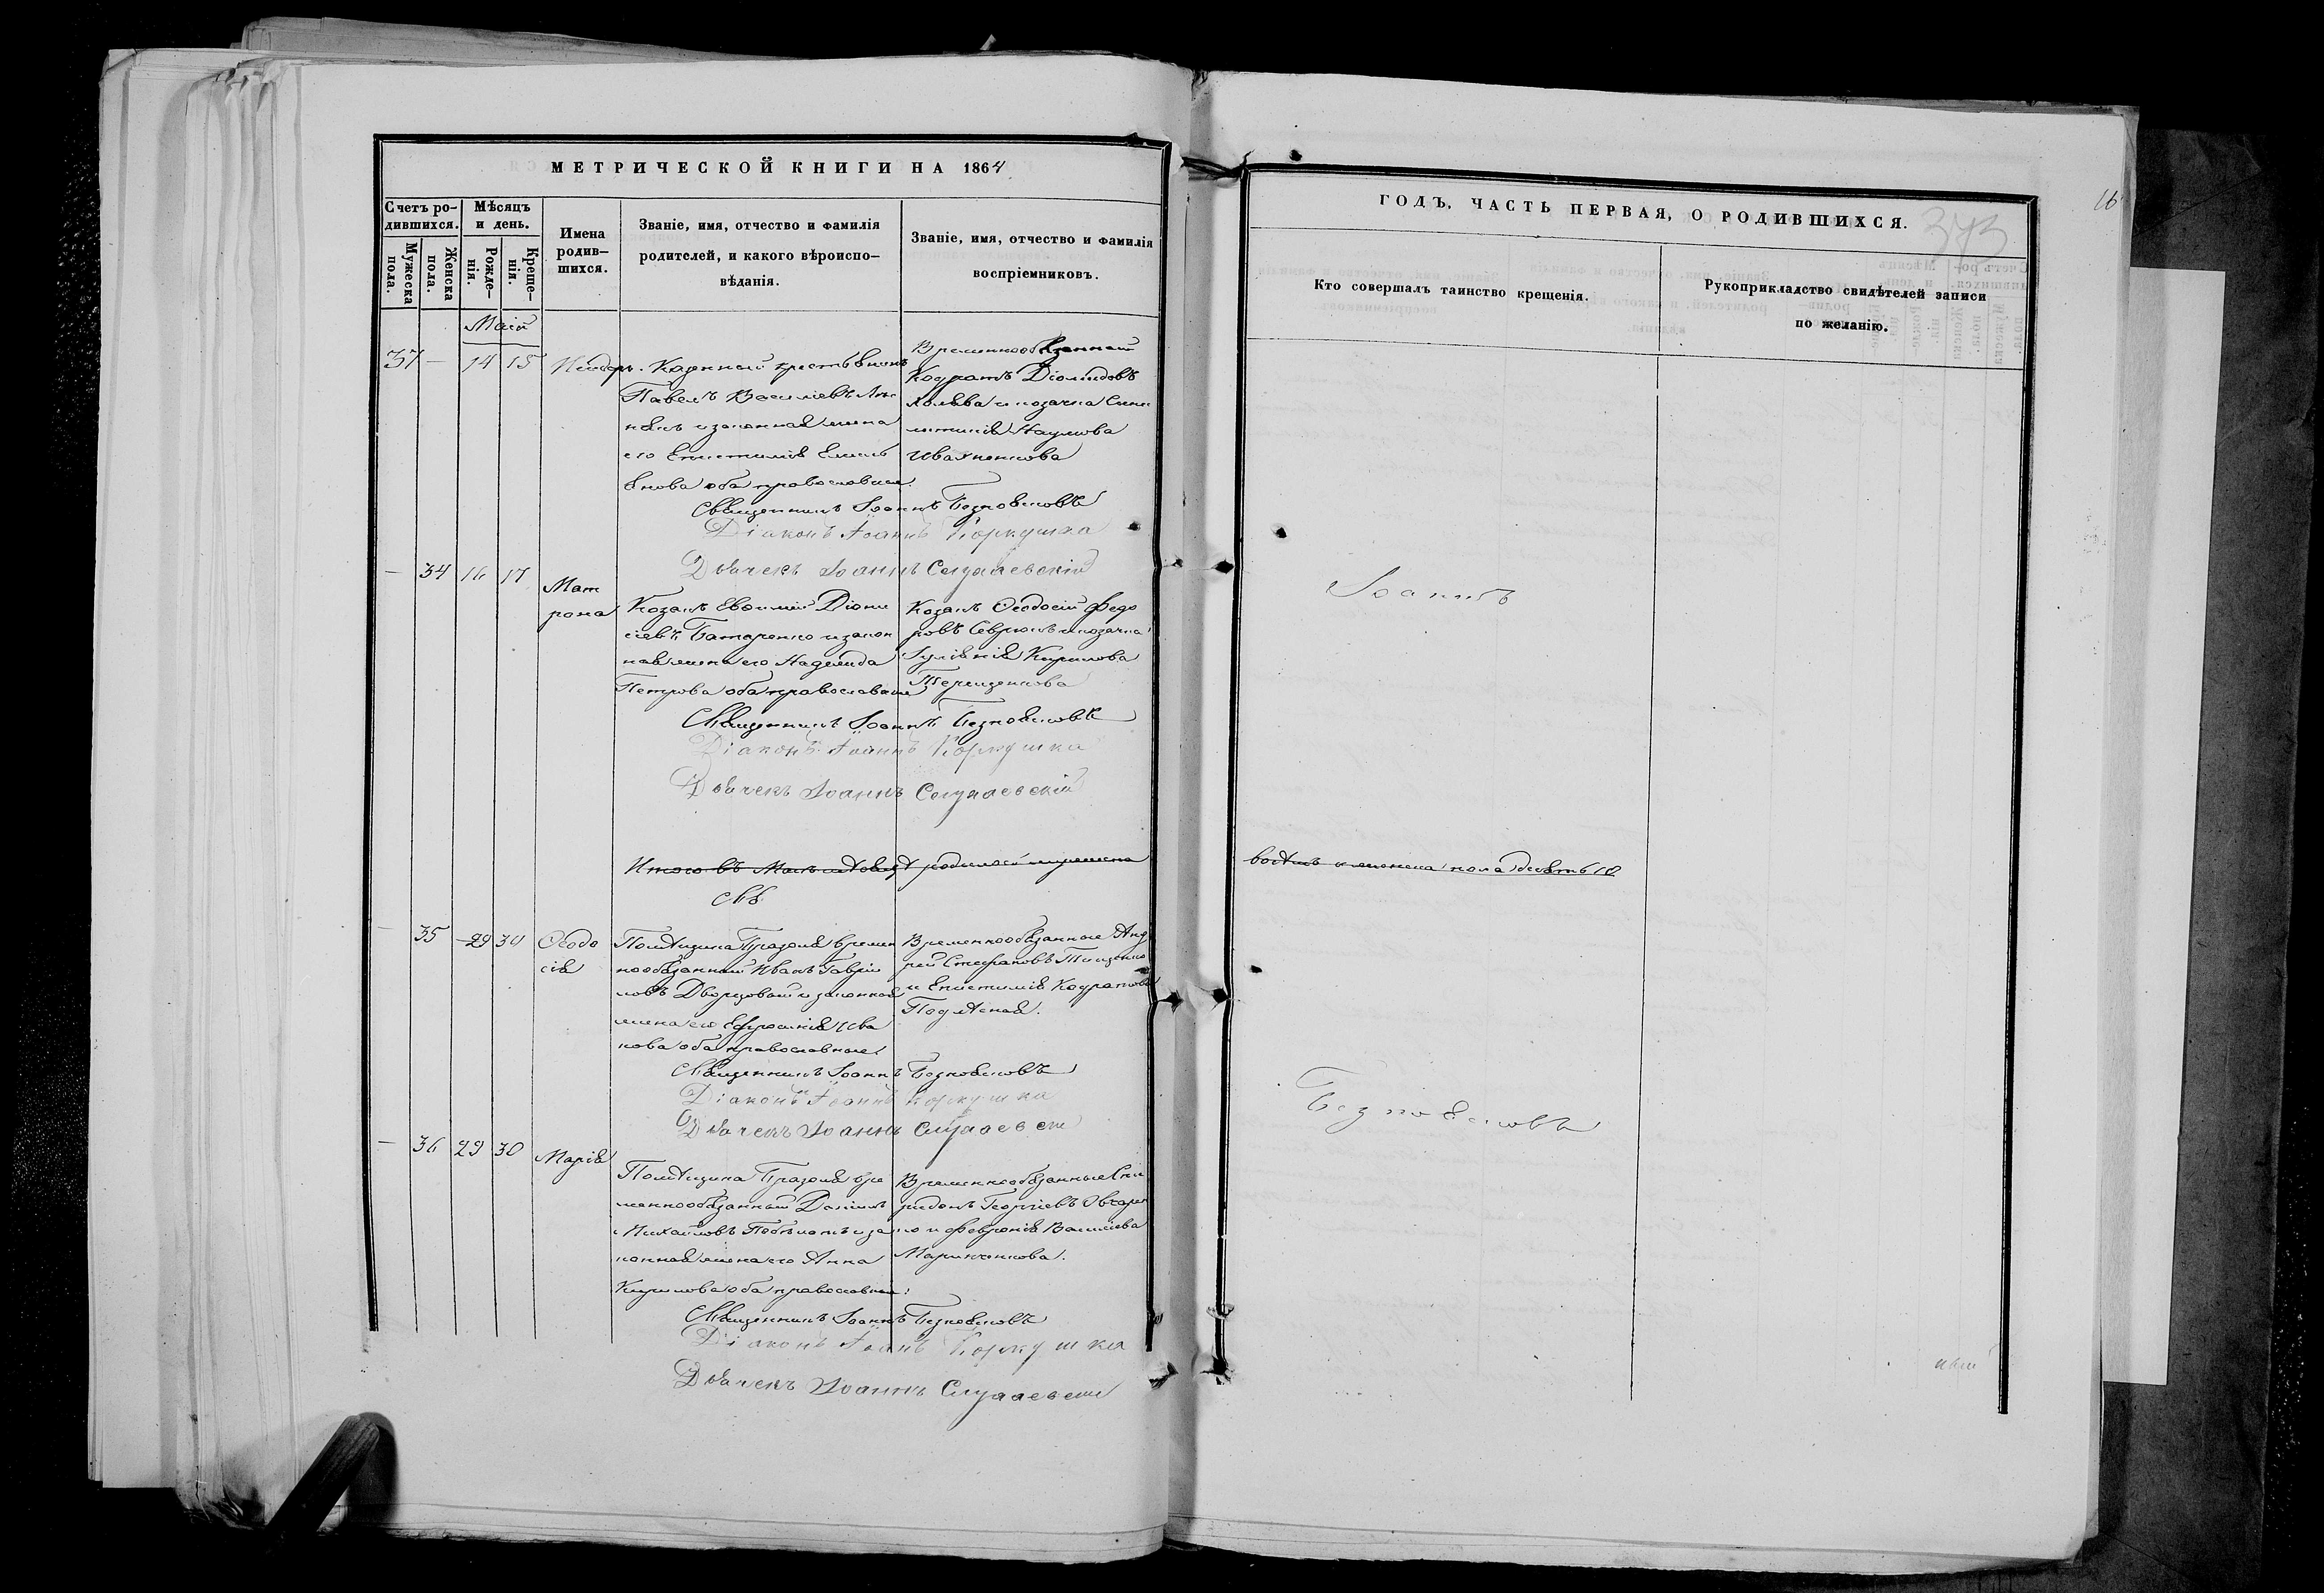 МЕТРИЧЕСКОЙ КНИГИ НА 1864
Счетъ ро-
дившихся.
Мужеска
пола.
Женска
пола.
Мѣсяцъ
и день.
Рожде-
нія.
Креще-
нія.
Имена
родив-
шихся.
Званіе, имя, отчество и фамилія
родителей, и какого вѣроиспо-
вѣданія.
Званіе, имя, отчество и фамилія
воспріемниковъ.
Маій
37 — 14 15
Исидоръ.
Казенный крестьянинъ
Павелъ Василіевъ
и законная жена
его Епистимія Емель
янова оба православные.
Временнообязанный
Кодратъ Діомидовъ
и козачка
Наумова
Священникъ Іоаннъ Безпоясковъ
Діаконъ Іоаннъ Коркушка
Дьячекъ Іоаннъ
— 34 16 17
Мат
рона
Козакъ Евфимій Діони
сіевъ Батаренко и закон
ная жена его Надежда
Петрова оба православные
Козакъ Ѳеодосій Федо
ровъ Севрюкъ и козачка
Іуліянія Кирилова
Терещенкова
Священникъ Іоаннъ Безпоясковъ
Діаконъ Іоаннъ Коркушка
Дьячекъ Іоаннъ
Итого въ родилось мужеска
Свѣ
— 35 29 30
Ѳеодо
сія
Помѣщика времен
нообязанный Иванъ Гаврии
ловъ Дворцовый и законная
жена его Ефросинія Ива
нова оба православные
Временнообязанные Анд
рей Стефановъ Тищенко
и Епистимія Кодратова
Подлѣсная.
Священникъ Іоаннъ Безпоясковъ
Діаконъ Іоаннъ Коркушка
Дьячекъ Іоаннъ
— 36 29 30
Марія
Помѣщика вре
меннообязанный Даніилъ
Михайловъ и за
конная жена его Анна
Кирилова оба православные:
Временнообязанные Спи
ридонъ Георгіевъ Овчарен
ко и Февронія Василіева
Маринченкова.
Священникъ Іоаннъ Безпоясковъ
Діаконъ Іоаннъ Коркушка
Дьячекъ Іоаннъ
ГОДЪ, ЧАСТЬ ПЕРВАЯ, О РОДИВШИХСЯ.
373
16
Кто совершалъ таинство крещенія.
Рукоприкладство свидѣтелей записи
по желанію.
Іоаннъ
и женска пола десять 10
Безпоясковъ